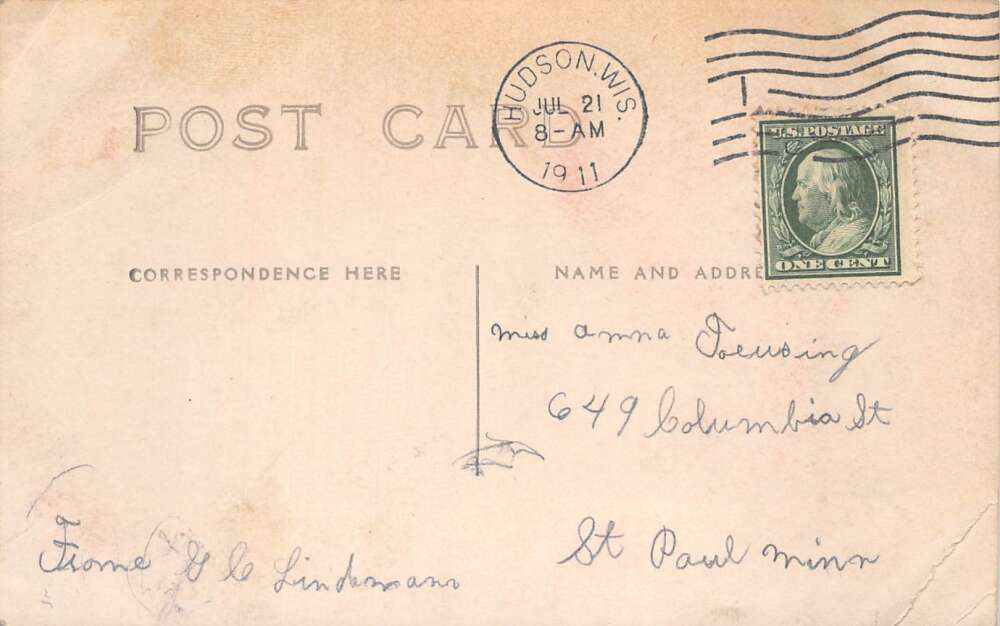 POST CARD
HUDSON, WIS.
JUL 21
8-AM
1911
U.S. POSTAGE
ONE CENT
CORRESPONDENCE HERE
NAME AND ADDRE
miss anna Toeusing
649 Columbia St
St Paul minn
Frome G C Lindemann